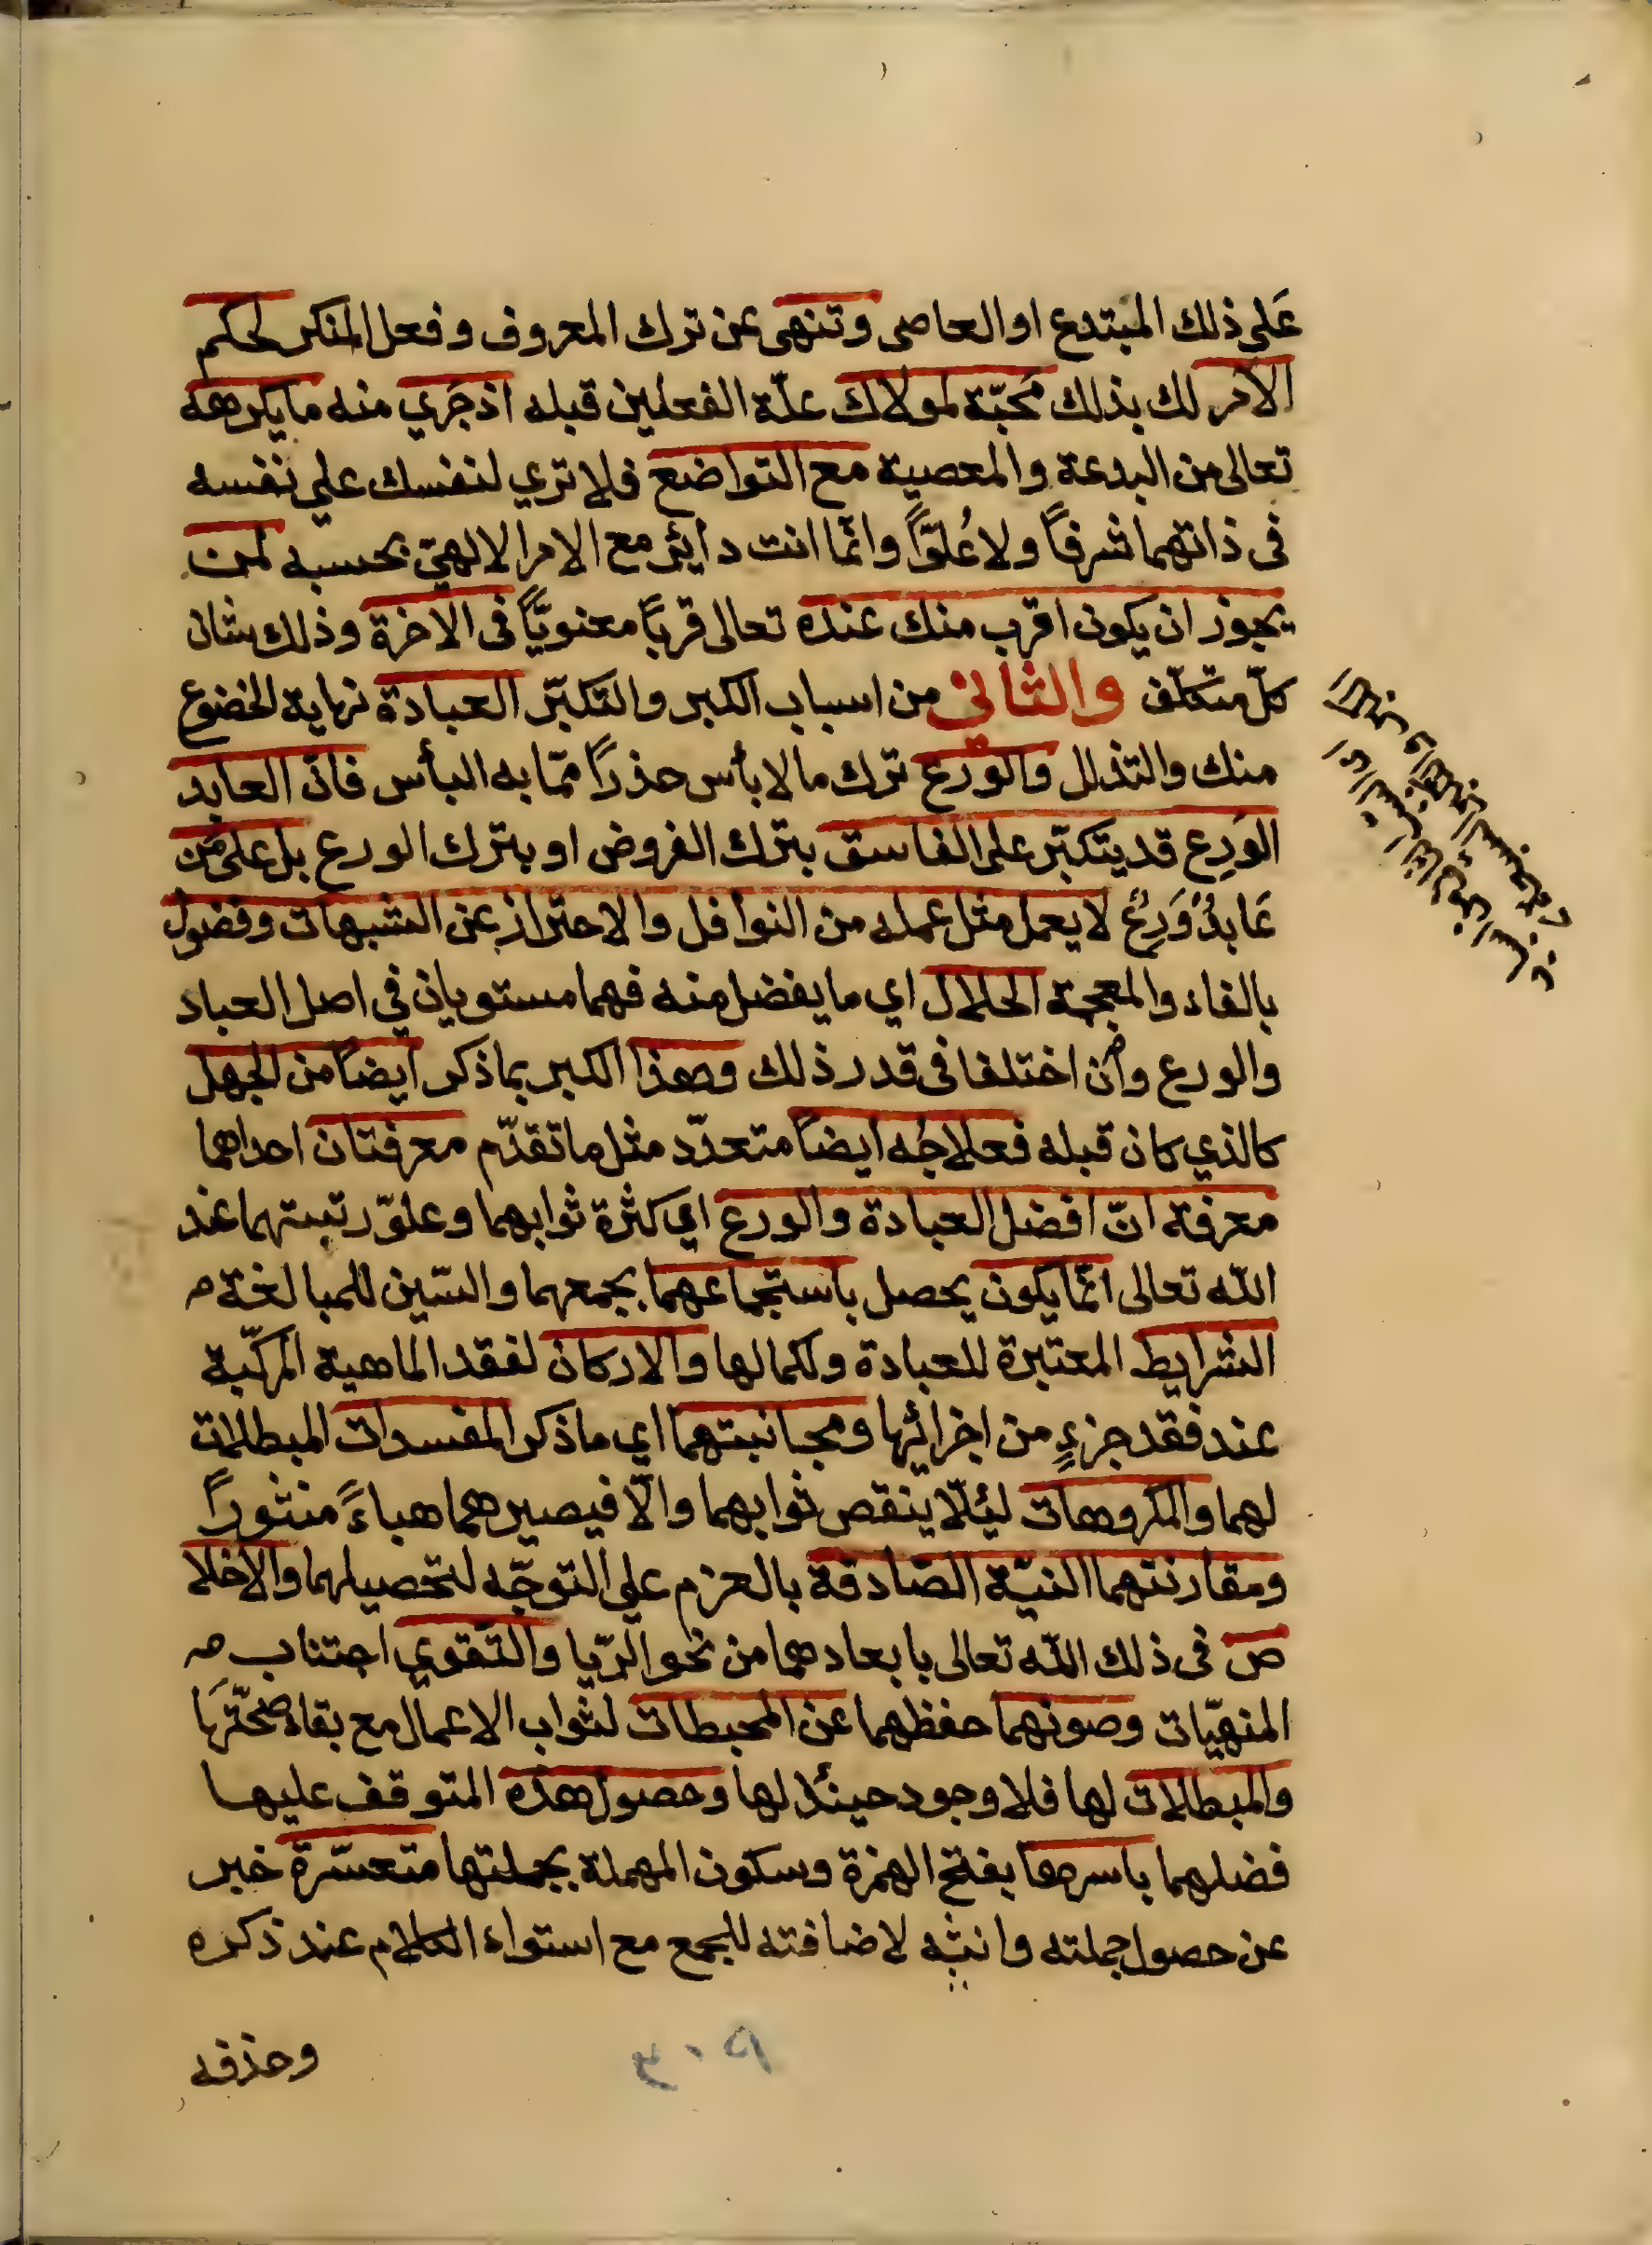 عَلى ذلك المبتدع او العاصى وتنهى عن ترك المعروف وفعل المنكر لحكم
الامر لك بذلك محَبّة لمولاك علّة الفعلين قبله اذ جَري منه ما يكرهه
تعالى من البدعة والمعصية مع التواضع فلا تري لنفسك على نفسه
فى ذاتهما شرفًا ولا عُلوًّا وانّما انت دائر مع الامر الالهىّ بحسبه لمن
يجوز ان يكون اقرب منك عنده تعالى قربًا معنويًّا فى الاخرة وذلك شان
كلّ متكلّف والثاني من اسباب الكبر والتكبّر العبادة نهاية الخضوع
منك والتذلل والورع ترك ما لا بأس حذرًا ممّا به البأس فانّ العابد
الوَرِع قد يتكبّر على الفاسق بترك الفروض او بترك الورع بل على مَن
عَابدٌ وَرِعٌ لا يعمل مثل عمله من النوافل والاحتراز عن الشبهات وفضول
بالفاء والمعجمة الحلال اي ما يفضل منه فهما مستويان في اصل العباد
والورع وان اختلفا فى قدر ذلك وهذا الكبر بما ذكر ايضًا من الجهل
كالذي كان قبله فعلاجُه ايضًا متعدّد مثل ما تقدّم معرفتان احداهما
معرفة انّ افضل العبادة والورع اي كثرة ثوابهما وعلوّ رتبتهما عند
الله تعالى انّما يكون يحصل باستجماعهما بجمعهما والسّين للمبالغة
الشرايط المعتبرة للعبادة ولكمالها والاركان لفقد الماهية المركّبة
عند فقد جزءٍ من اجزائها ومجانبتهما اي ما ذكر المفسدات المبطلات
لهما والمكروهات لئلّا ينقص ثوابهما والّا فيصيرهما هباءً منثورًا
ومقارنتهما النيّة الصّادقة بالعزم على التوجّه لتحصيلهما والاخلا
ص فى ذلك الله تعالى بابعادهما من نحو الريّا والتّقوي اجتناب
المنهيّات وصونهما حفظهما عن المحبطات لثواب الاعمال مع بقاء صحّتها
والمبطلات لها فلا وجود حينئذ لها وحصول هذه المتوقف عليها
فضلهما باسرها بفتح الهمزة وسكون المهملة بجملتها متعسّرة خبر
عن حصول جملته وانثه لاضافته للجمع مع استواء الكلام عند ذكره
وحذفه